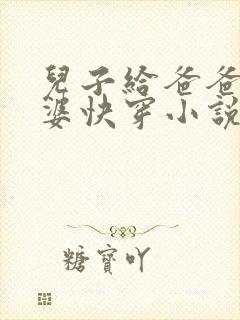 兒子給爸爸
婆快穿小說
糖寶吖